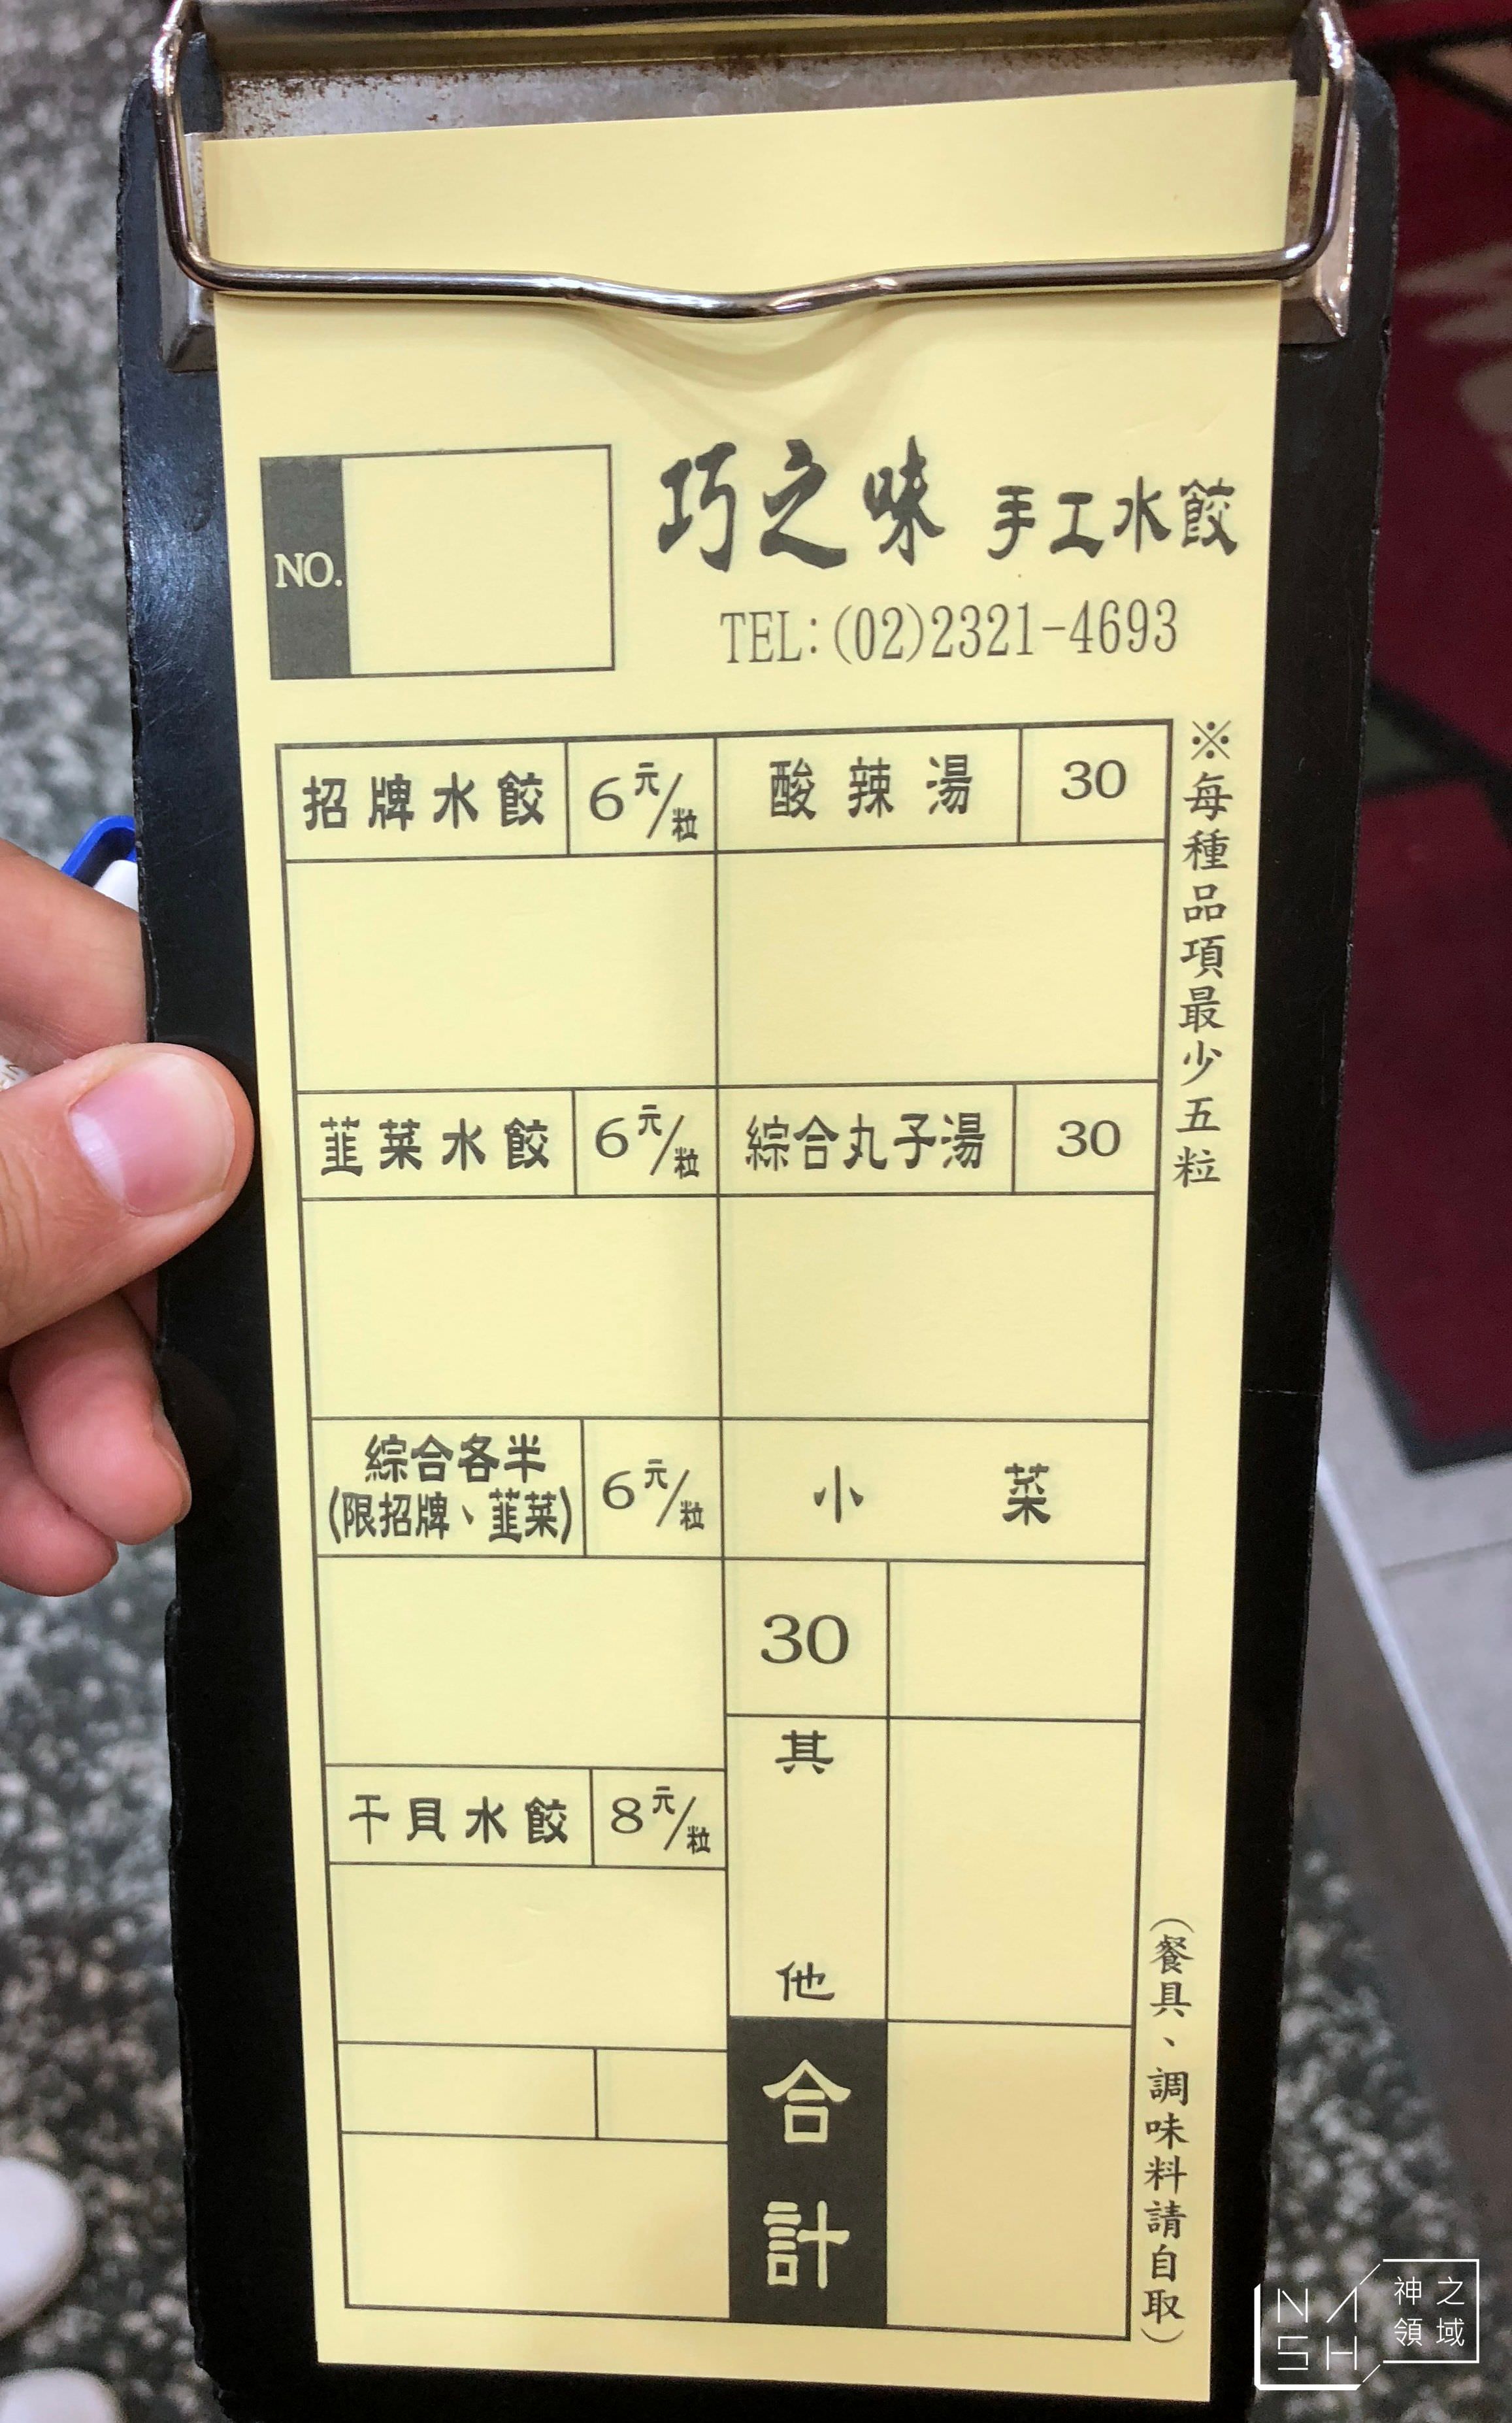 NO.
巧之味 手工水餃
TEL:(02)2321-4693
招牌水餃 6元/粒 酸辣湯 30
韮菜水餃 6元/粒 綜合丸子湯 30
綜合各半 6元/粒 小菜
(限招牌、韮菜)
30
干貝水餃 8元/粒
其他
合計
※每種品項最少五粒
(餐具、調味料請自取)
NASH 神之領域